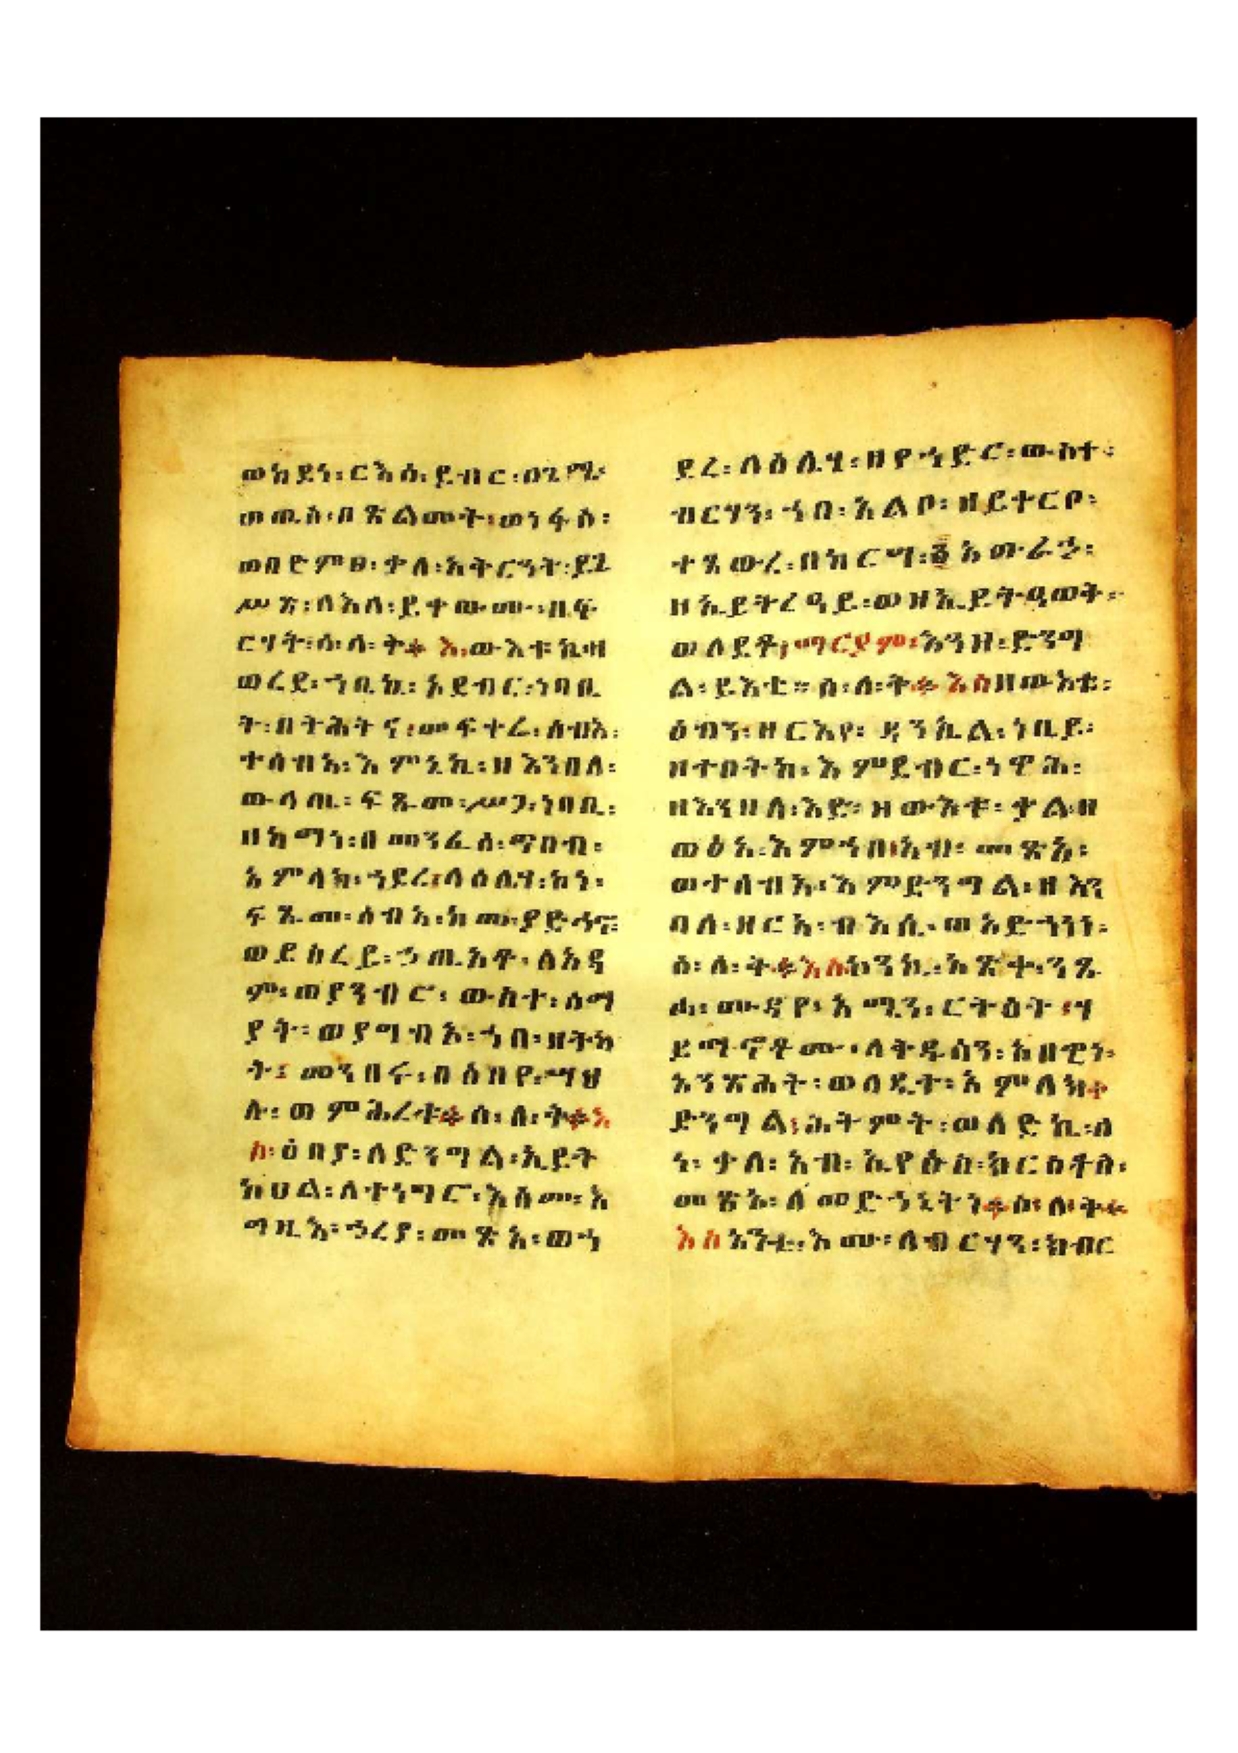 ወከደነ፡ርእሰ፡ደብር፡በጊሜ፡
ወጢስ፡በጽልመት፡ወነፋስ፡
ወበድምፀ፡ቃለ፡አቅርንት፡ይጌ
ሥጽ፡ለእለ፡ይቀውሙ፡በፍ
ርሃት፡ሰ፡ለ፡ት፨እ፡ውእቱ፡ዘ
ወረደ፡ኀቤኪ፡ኦደብር፡ነባቢ
ት፡በትሕትና፡መፍቀሬ፡ሰብእ፡
ተሰብአ፡እምኔኪ፡ዘእንበለ፡
ውላጤ፡ፍጹመ፡ሥጋ፡ነባቢ፡
ዘከማነ፡በመንፈሰ፡ጥበብ፡
አምላክ፡ኀደረ፡ላዕሌሃ፡ኮነ፡
ፍጹመ፡ሰብአ፡ከመ፡ያድኅኖ፡
ወይስረይ፡ኃጢአቶ፡ለአዳ
ም፡ወያንብሮ፡ውስተ፡ሰማ
ያት፡ወያግብኦ፡ኀበ፡ዘትካ
ት፡መንበሩ፡በዕበየ፡ሣህ
ሉ፡ወምሕረቱ፨ሰ፡ለ፡ት፨እ
ስ፡ዕበያ፡ለድንግል፡ኢይት
ከሀል፡ለተነግሮ፡እስመ፡እ
ግዚእ፡ኀረያ፡መጽአ፡ወኀ
ደረ፡ላዕሌሃ፡ዘየኀድር፡ውስተ፡
ብርሃን፡ኀበ፡አልቦ፡ዘይቀርቦ፡
ተጸውረ፡በከርሣ፡፱አውራኃ፡
ዘኢይትረዓይ፡ወዘኢይትዓወቅ፡
ወለደቶ፡ማርያም፡እንዘ፡ድንግ
ል፡ይእቲ፡ሰ፡ለ፡ት፨እስዘውእቱ፡
ዕብን፡ዘርእየ፡ዳንኤል፡ነቢይ፡
ዘተበትከ፡እምደብር፡ነዋሕ፡
ዘእንበለ፡እድ፡ዘውእቱ፡ቃል፡ዘ
ወዕአ፡እምኀበ፡አብ፡መጽአ፡
ወተሰብአ፡እምድንግል፡ዘእን
በለ፡ዘርአ፡ብእሲ፡ወአድኀነነ፡
ሰ፡ለ፡ት፨እስኮንኪ፡አጽቀ፡ንጹ
ሐ፡ሙዳየ፡አሚን፡ርትዕት፡ሃ
ይማኖቶሙ፡ለቅዱሳን፡አበዊነ፡
ኦንጽሕት፡ወላዲተ፡አምላክ፨
ድንግል፡ሕትምት፡ወለድኪ፡ለ
ነ፡ቃለ፡አብ፡ኢየሱስ፡ክርስቶስ፡
መጽአ፡ለመድኀኒትነ፨ሰ፡ለ፡ት፨
እስአንቲ፡እሙ፡ለብርሃን፡ክብር